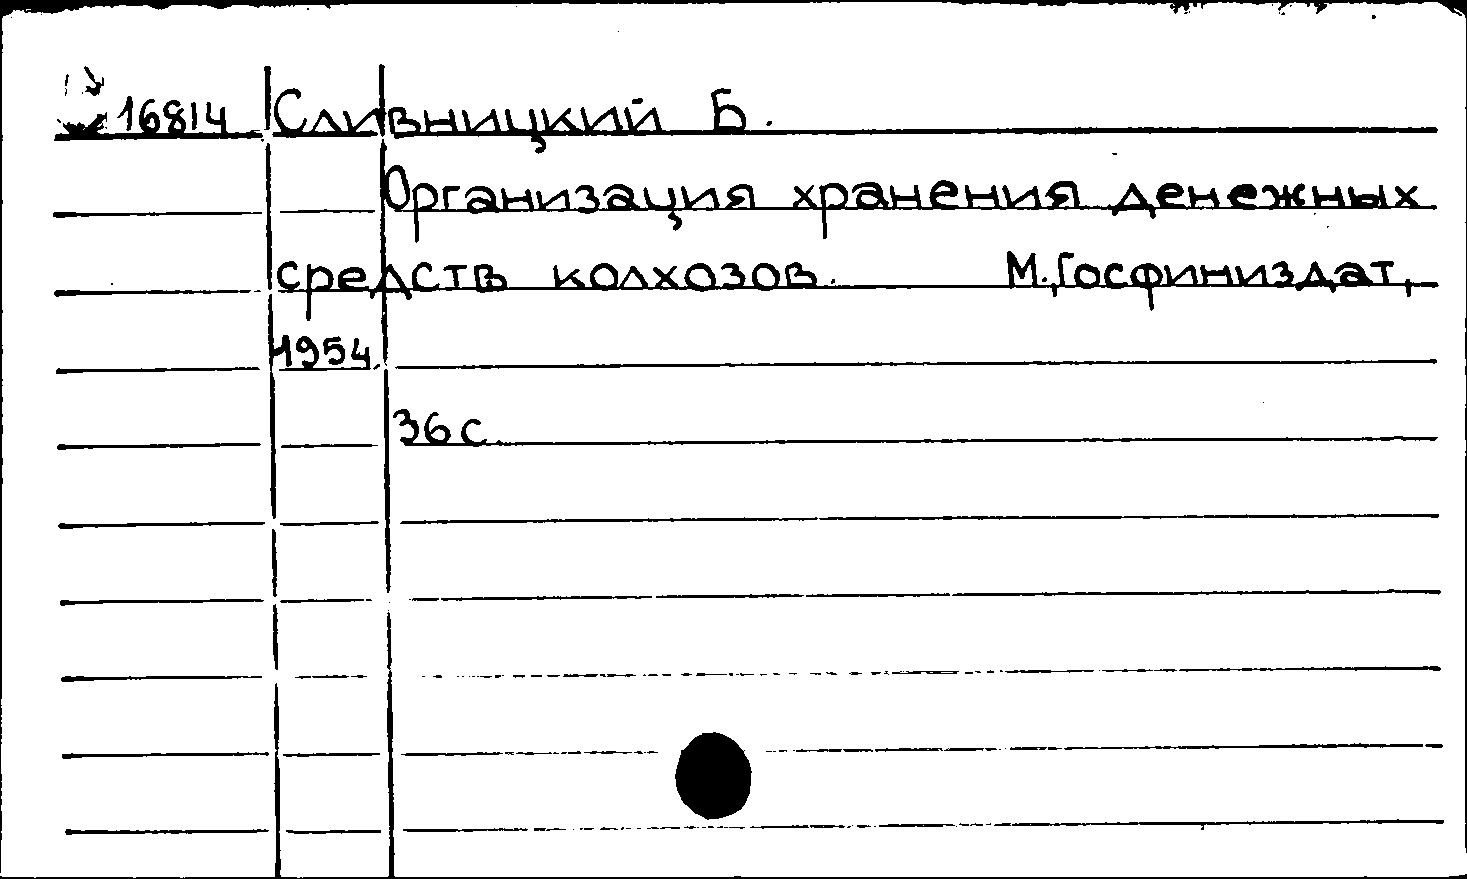 16814 Сливницкий Б.
Организация хранения денежных
средств колхозов. М., Госфиниздат,
1954
36 с.